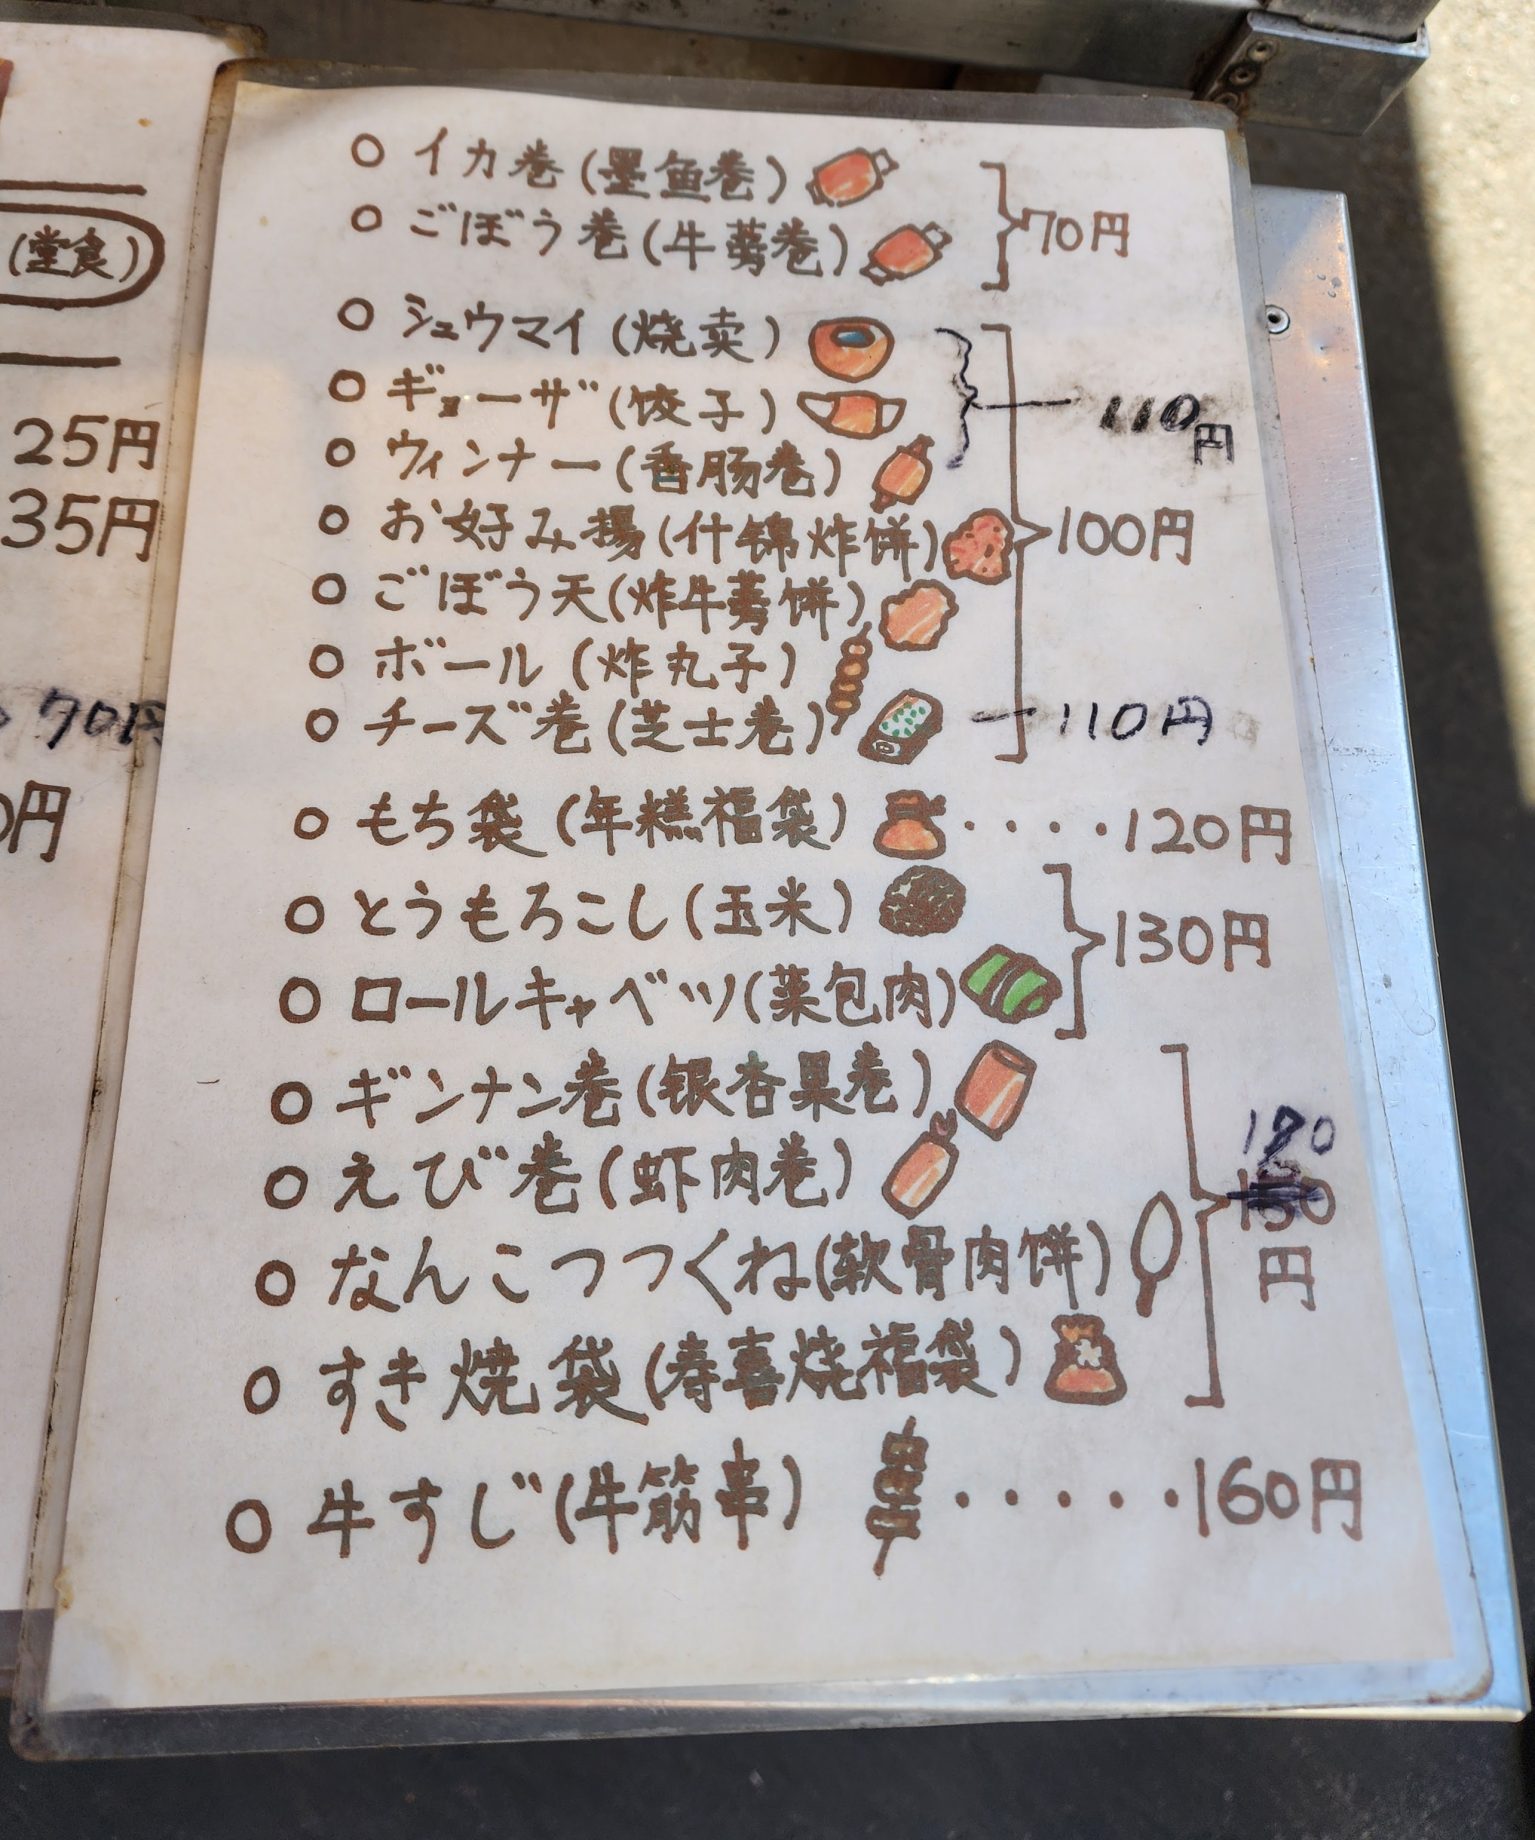 (堂食)
25円
35円
70円
0円
○ イカ巻(墨鱼巻)
○ ごぼう巻(牛蒡巻)
70円
○ シュウマイ(烧卖)
○ ギョーザ(饺子)
○ ウィンナー(香肠巻)
110円
○ お好み揚(什锦炸饼)
100円
○ ごぼう天(炸牛蒡饼)
○ ボール(炸丸子)
○ チーズ巻(芝士巻)
110円
○ もち袋(年糕福袋)・・・・120円
○ とうもろこし(玉米)
○ ロールキャベツ(菜包肉)
130円
○ ギンナン巻(银杏果巻)
○ えび巻(虾肉巻)
○ なんこつつくね(软骨肉饼)
○ すき焼袋(寿喜烧福袋)
円
○ 牛すじ(牛筋串)・・・・・160円